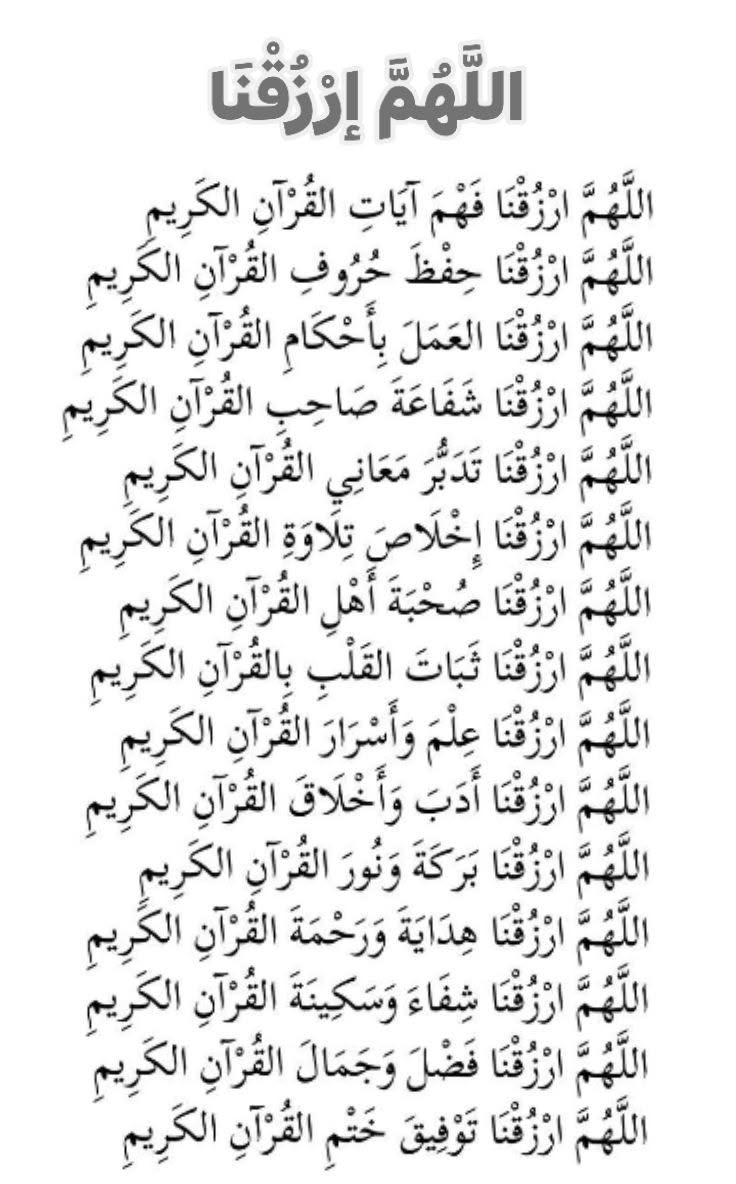 اللَّهُمَّ إرْزُقْنَا
اللَّهُمَّ ارْزُقْنَا فَهْمَ آيَاتِ القُرْآنِ الكَرِيمِ
اللَّهُمَّ ارْزُقْنَا حِفْظَ حُرُوفِ القُرْآنِ الكَرِيمِ
اللَّهُمَّ ارْزُقْنَا العَمَلَ بِأَحْكَامِ القُرْآنِ الكَرِيمِ
اللَّهُمَّ ارْزُقْنَا شَفَاعَةَ صَاحِبِ القُرْآنِ الكَرِيمِ
اللَّهُمَّ ارْزُقْنَا تَدَبُّرَ مَعَانِي القُرْآنِ الكَرِيمِ
اللَّهُمَّ ارْزُقْنَا إِخْلَاصَ تِلَاوَةِ القُرْآنِ الكَرِيمِ
اللَّهُمَّ ارْزُقْنَا صُحْبَةَ أَهْلِ القُرْآنِ الكَرِيمِ
اللَّهُمَّ ارْزُقْنَا ثَبَاتَ القَلْبِ بِالقُرْآنِ الكَرِيمِ
اللَّهُمَّ ارْزُقْنَا عِلْمَ وَأَسْرَارَ القُرْآنِ الكَرِيمِ
اللَّهُمَّ ارْزُقْنَا أَدَبَ وَأَخْلَاقَ القُرْآنِ الكَرِيمِ
اللَّهُمَّ ارْزُقْنَا بَرَكَةَ وَنُورَ القُرْآنِ الكَرِيمِ
اللَّهُمَّ ارْزُقْنَا هِدَايَةَ وَرَحْمَةَ القُرْآنِ الكَرِيمِ
اللَّهُمَّ ارْزُقْنَا شِفَاءَ وَسَكِينَةَ القُرْآنِ الكَرِيمِ
اللَّهُمَّ ارْزُقْنَا فَضْلَ وَجَمَالَ القُرْآنِ الكَرِيمِ
اللَّهُمَّ ارْزُقْنَا تَوْفِيقَ خَتْمِ القُرْآنِ الكَرِيمِ